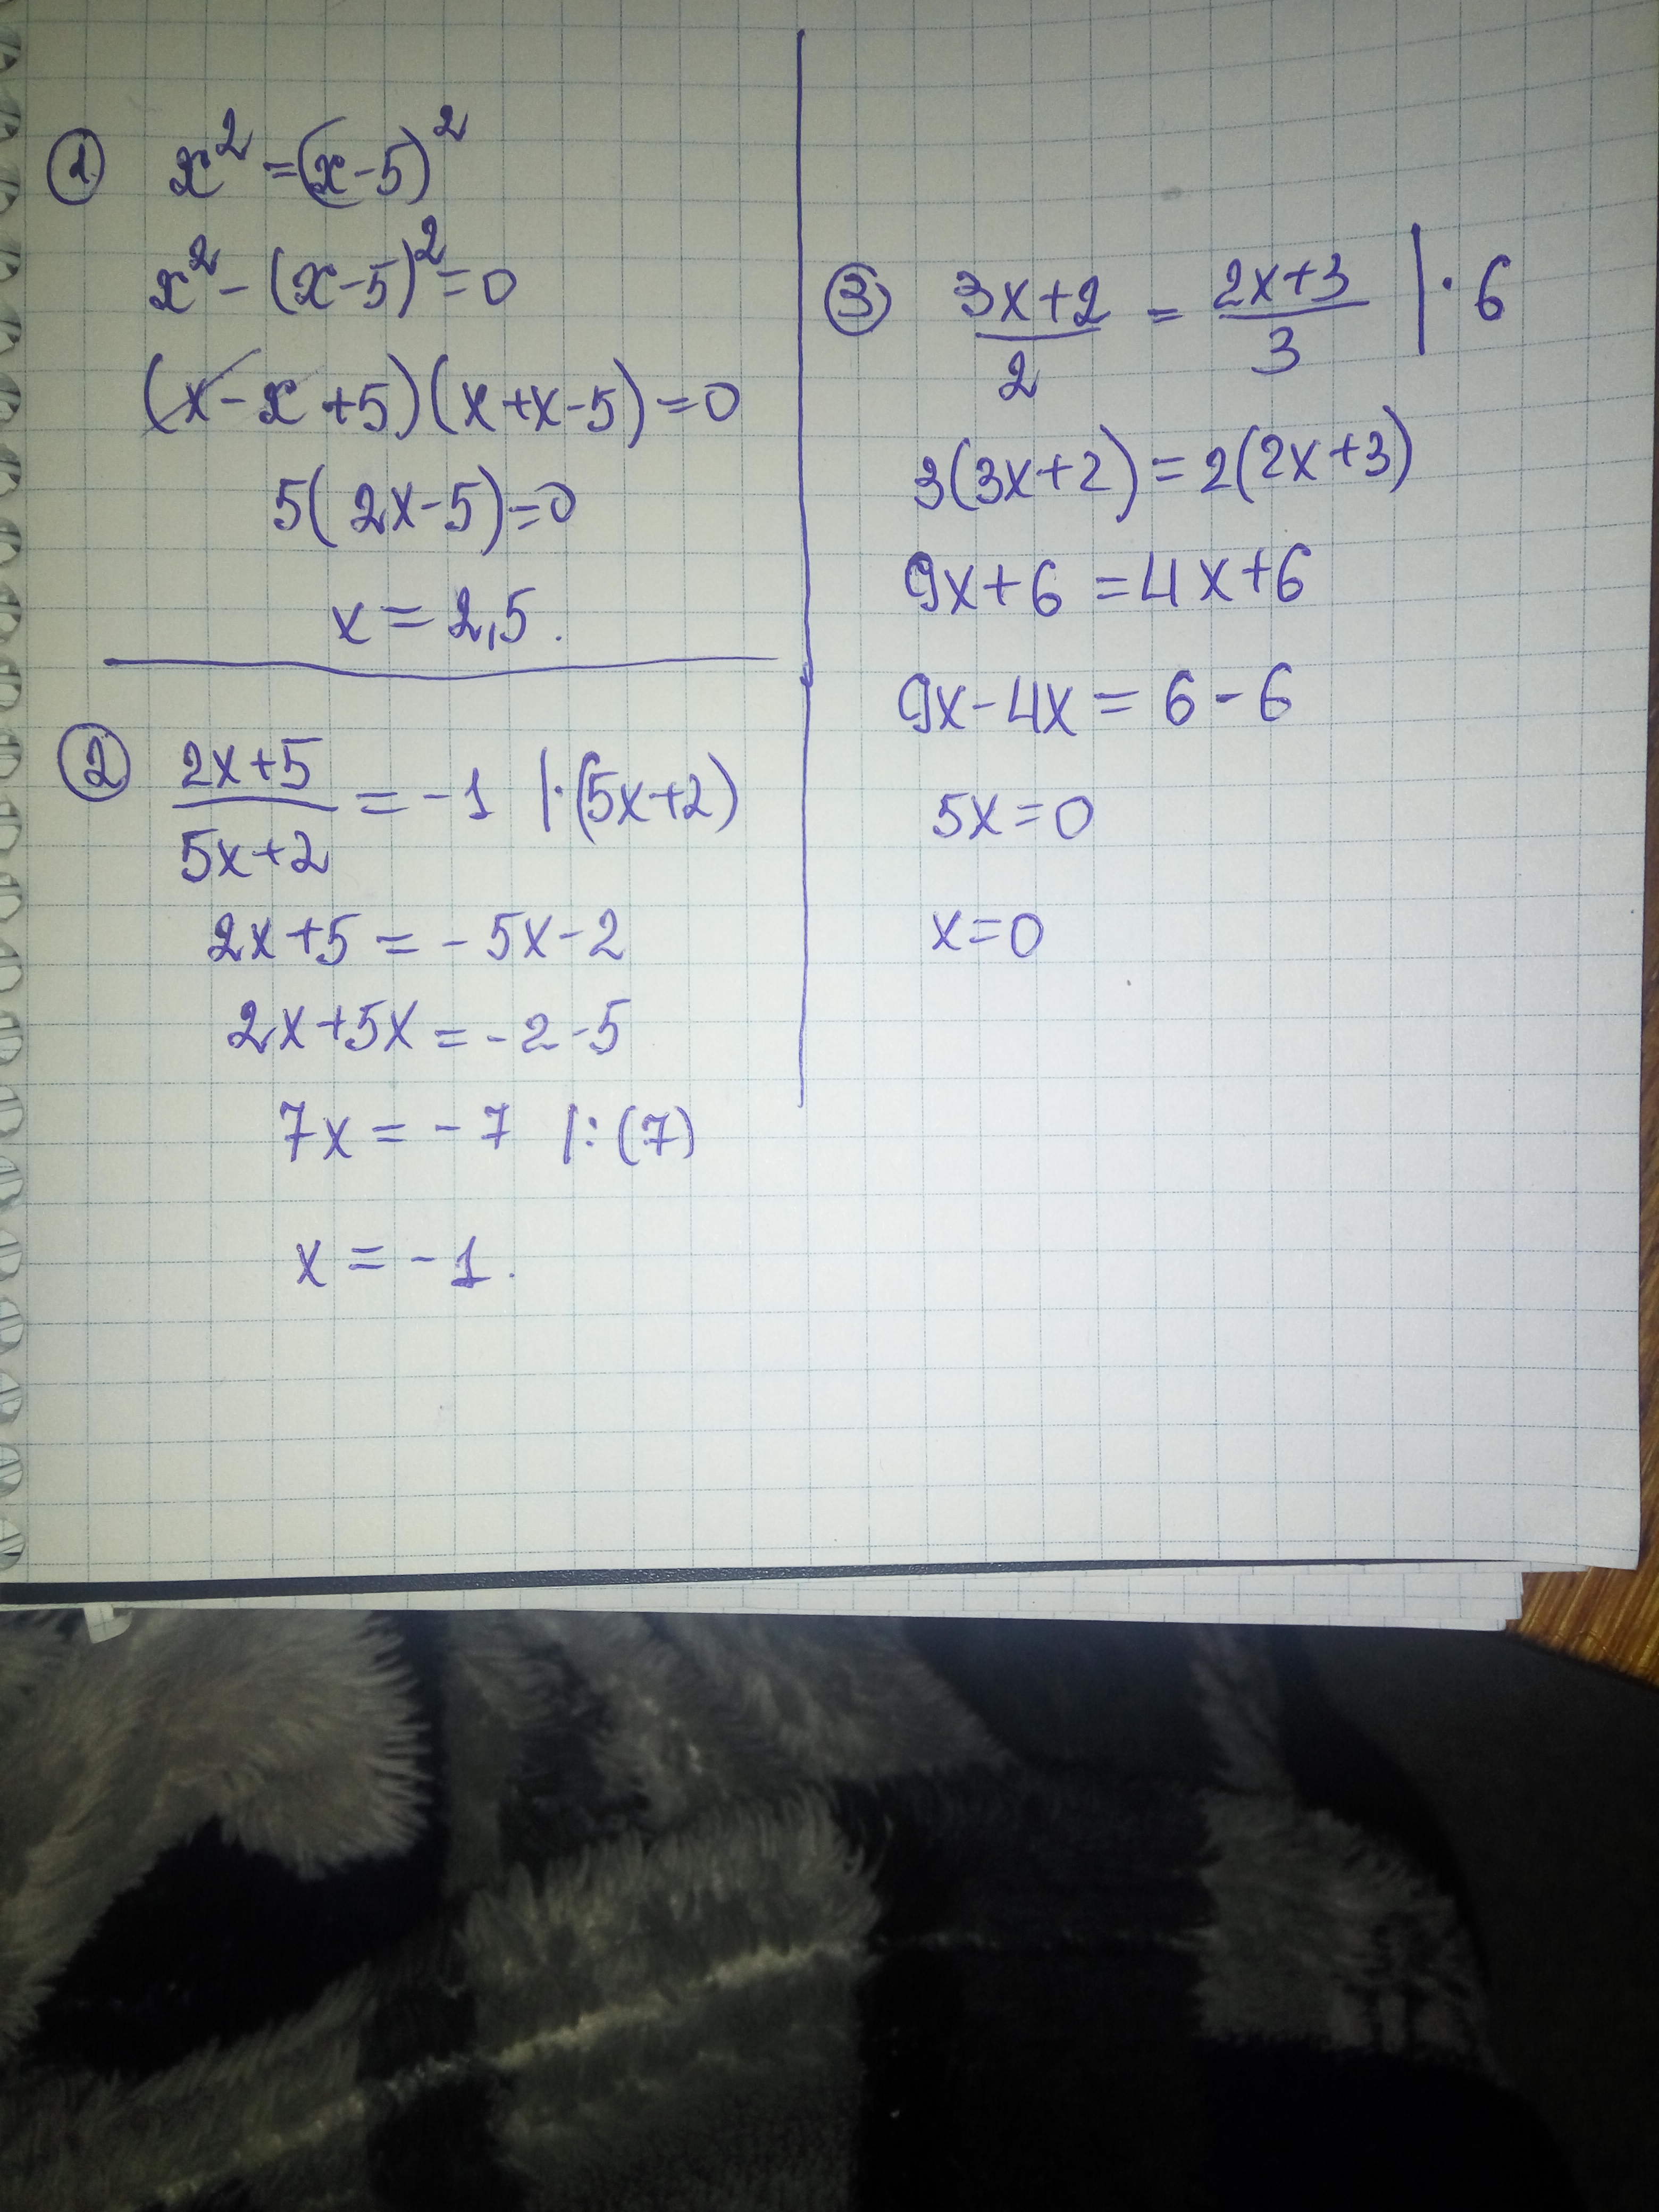 ① x² = (x-5)²
x² - (x-5)² = 0
(x - x + 5)(x + x - 5) = 0
5(2x - 5) = 0
x = 2,5.
② (2x+5)/(5x+2) = -1 |·(5x+2)
2x+5 = -5x-2
2x+5x = -2-5
7x = -7 |:(7)
x = -1.
③ (3x+2)/2 = (2x+3)/3 |·6
3(3x+2) = 2(2x+3)
9x+6 = 4x+6
9x-4x = 6-6
5x=0
x=0